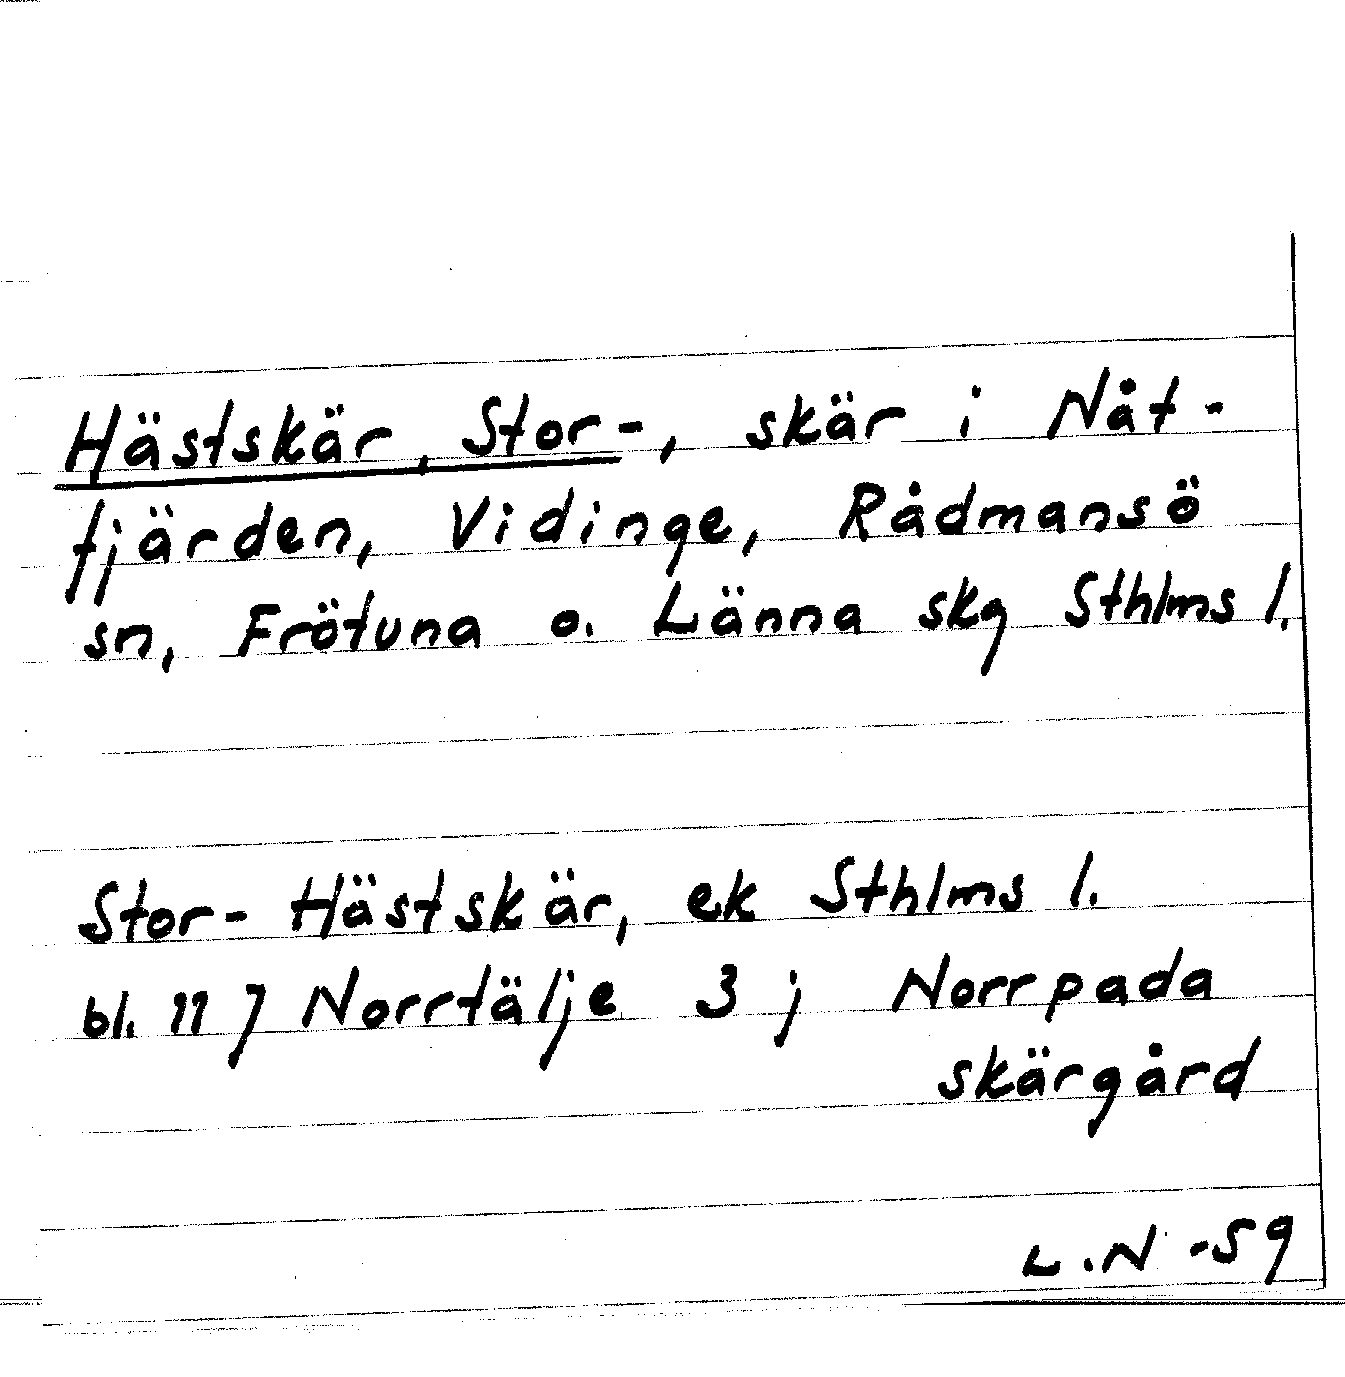 Hästskär, Stor-, skär i Nåt-
fjärden, Vidinge, Rådmansö
sn, Frötuna o. Länna skg Sthlms l.
Stor-Hästskär, ek Sthlms l.
bl. 117 Norrtälje 3 j Norrpada
skärgård
L.N -59